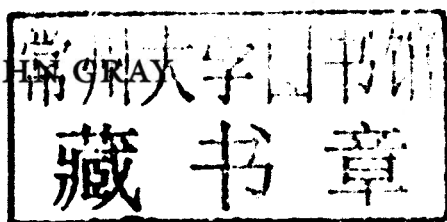 常州大学图书馆
HN GRAY
藏书章